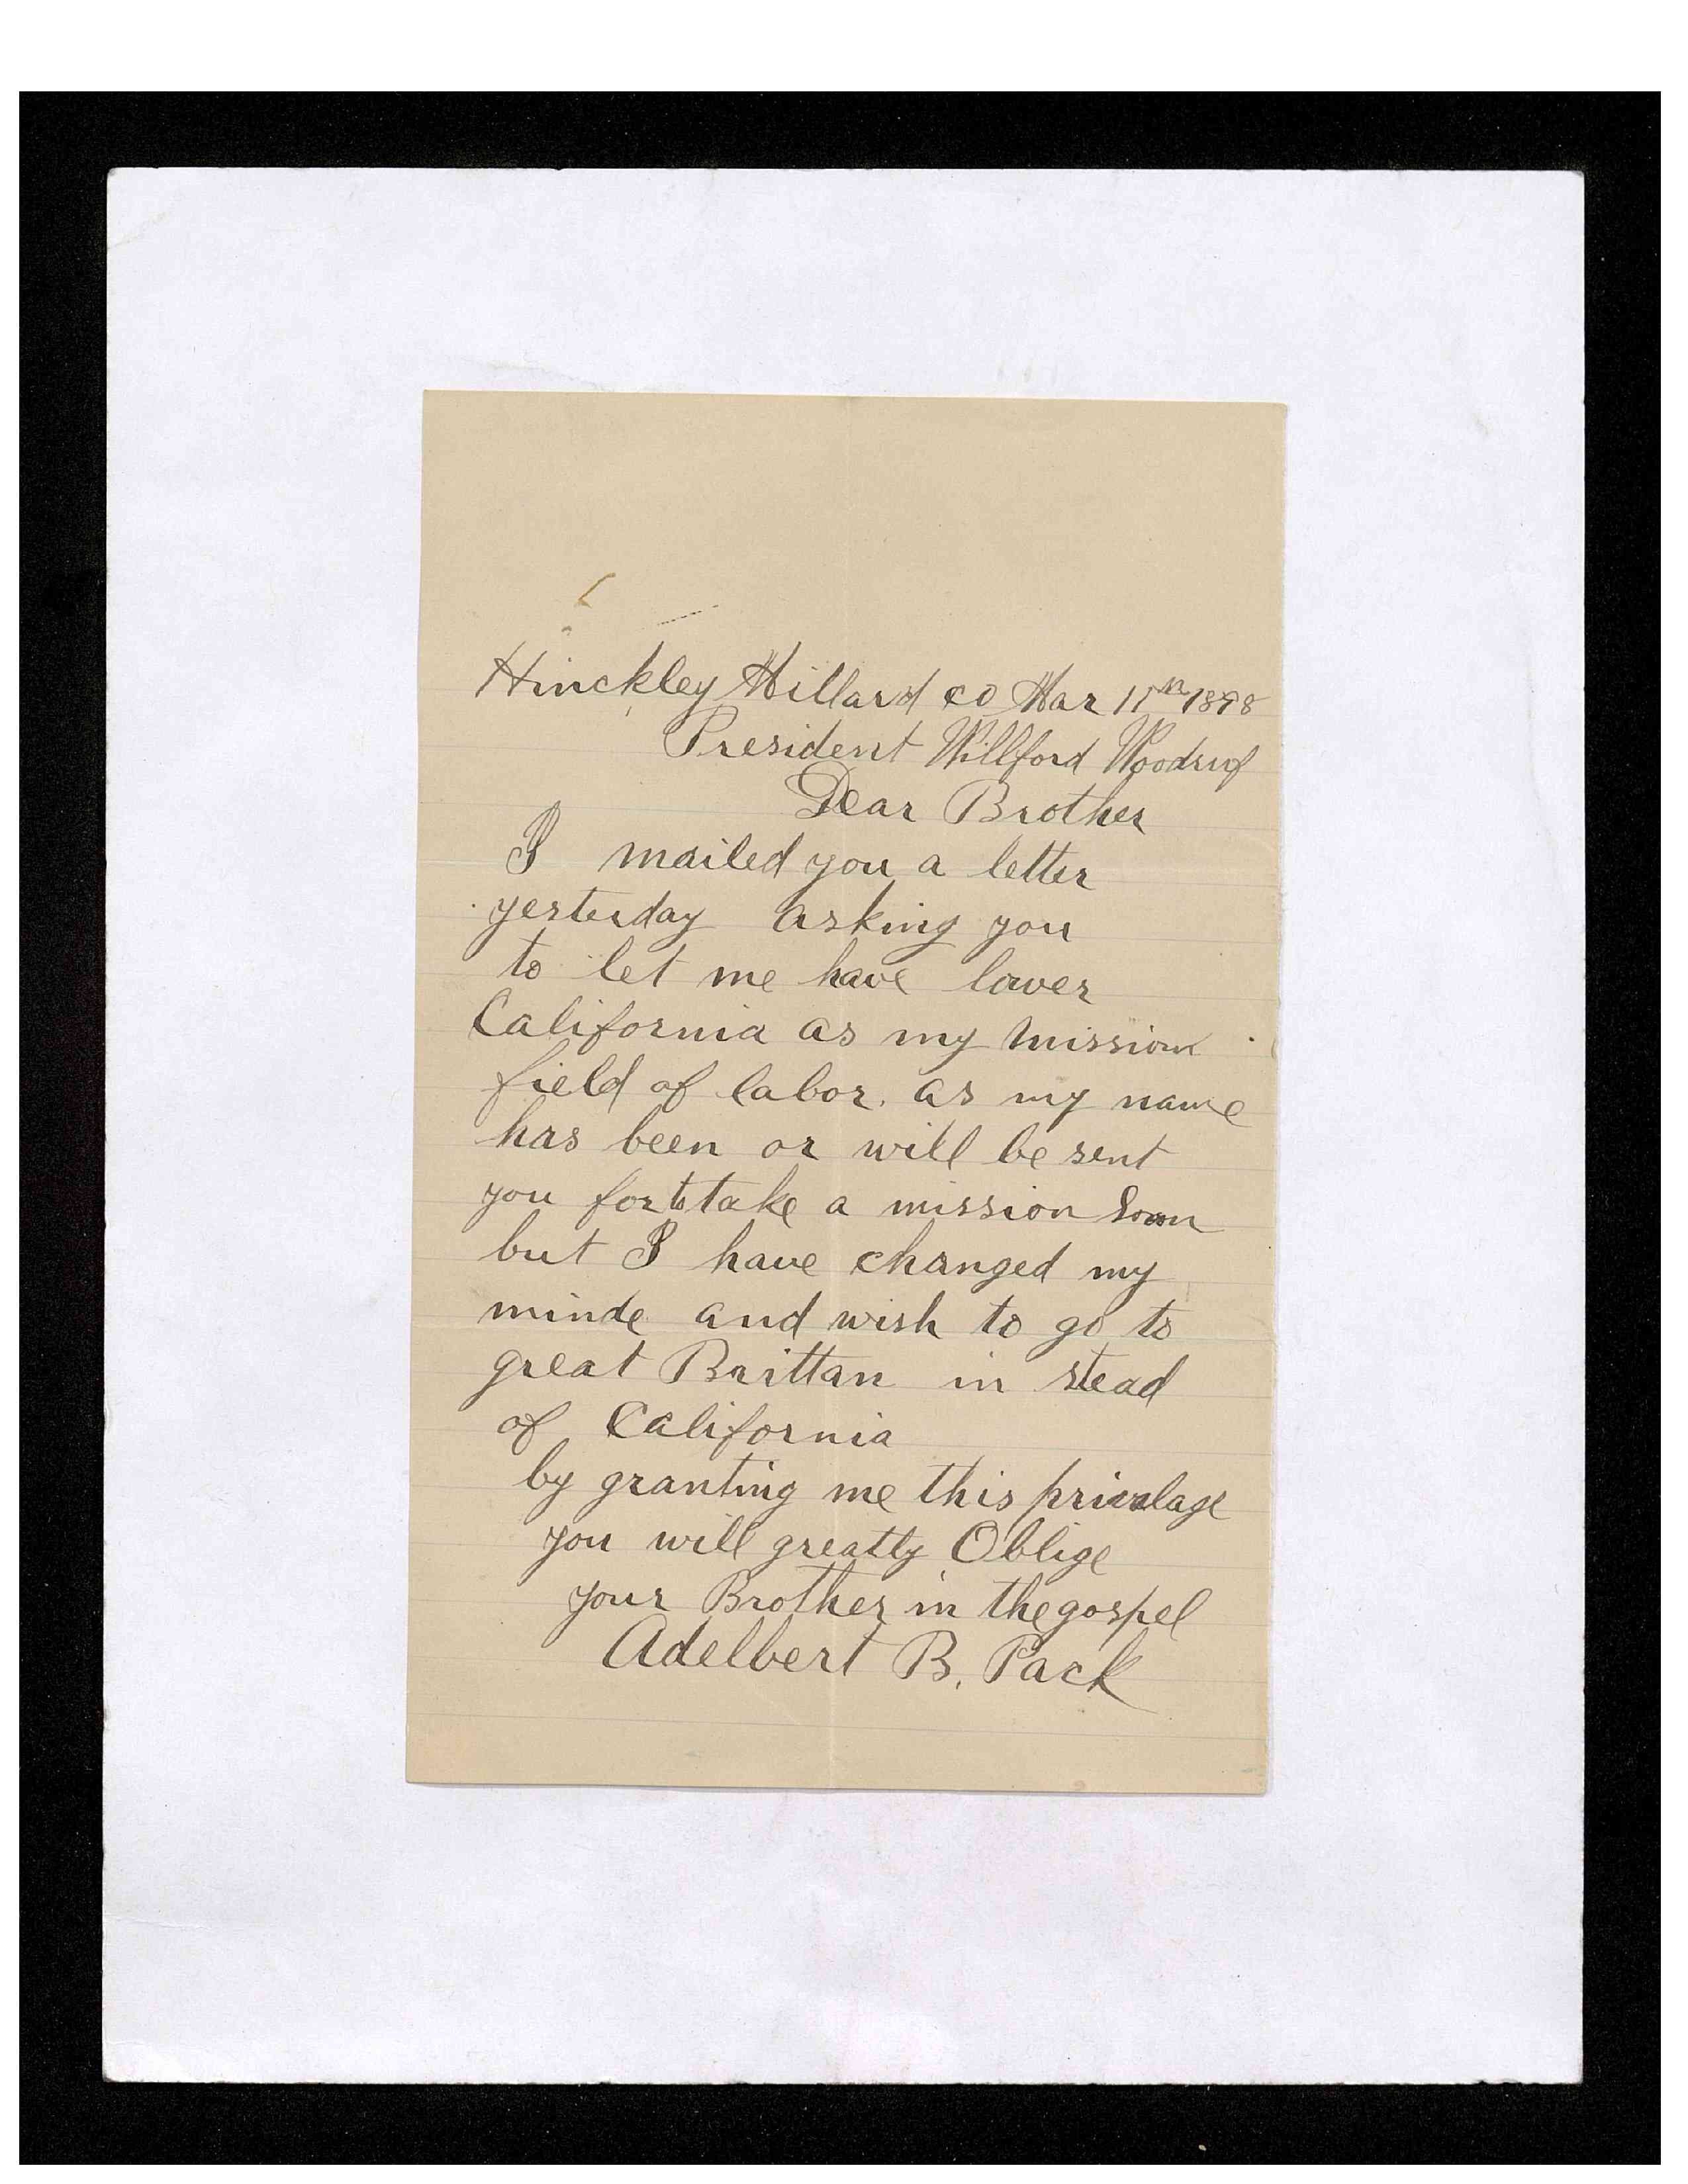 Hinckley Millard co Mar 11th 1898
President Willford Woodruf
Dear Brother
I mailed you a letter
yesterday asking you
to let me have lower
California as my mission
field of labor. as my name
has been or will be sent
you for to take a mission Soon
but I have changed my
minde and wish to go to
great Brittan in stead
of California
by granting me this privelage
you will greatly Oblige
your Brother in the gospel
Adelbert B. Pack